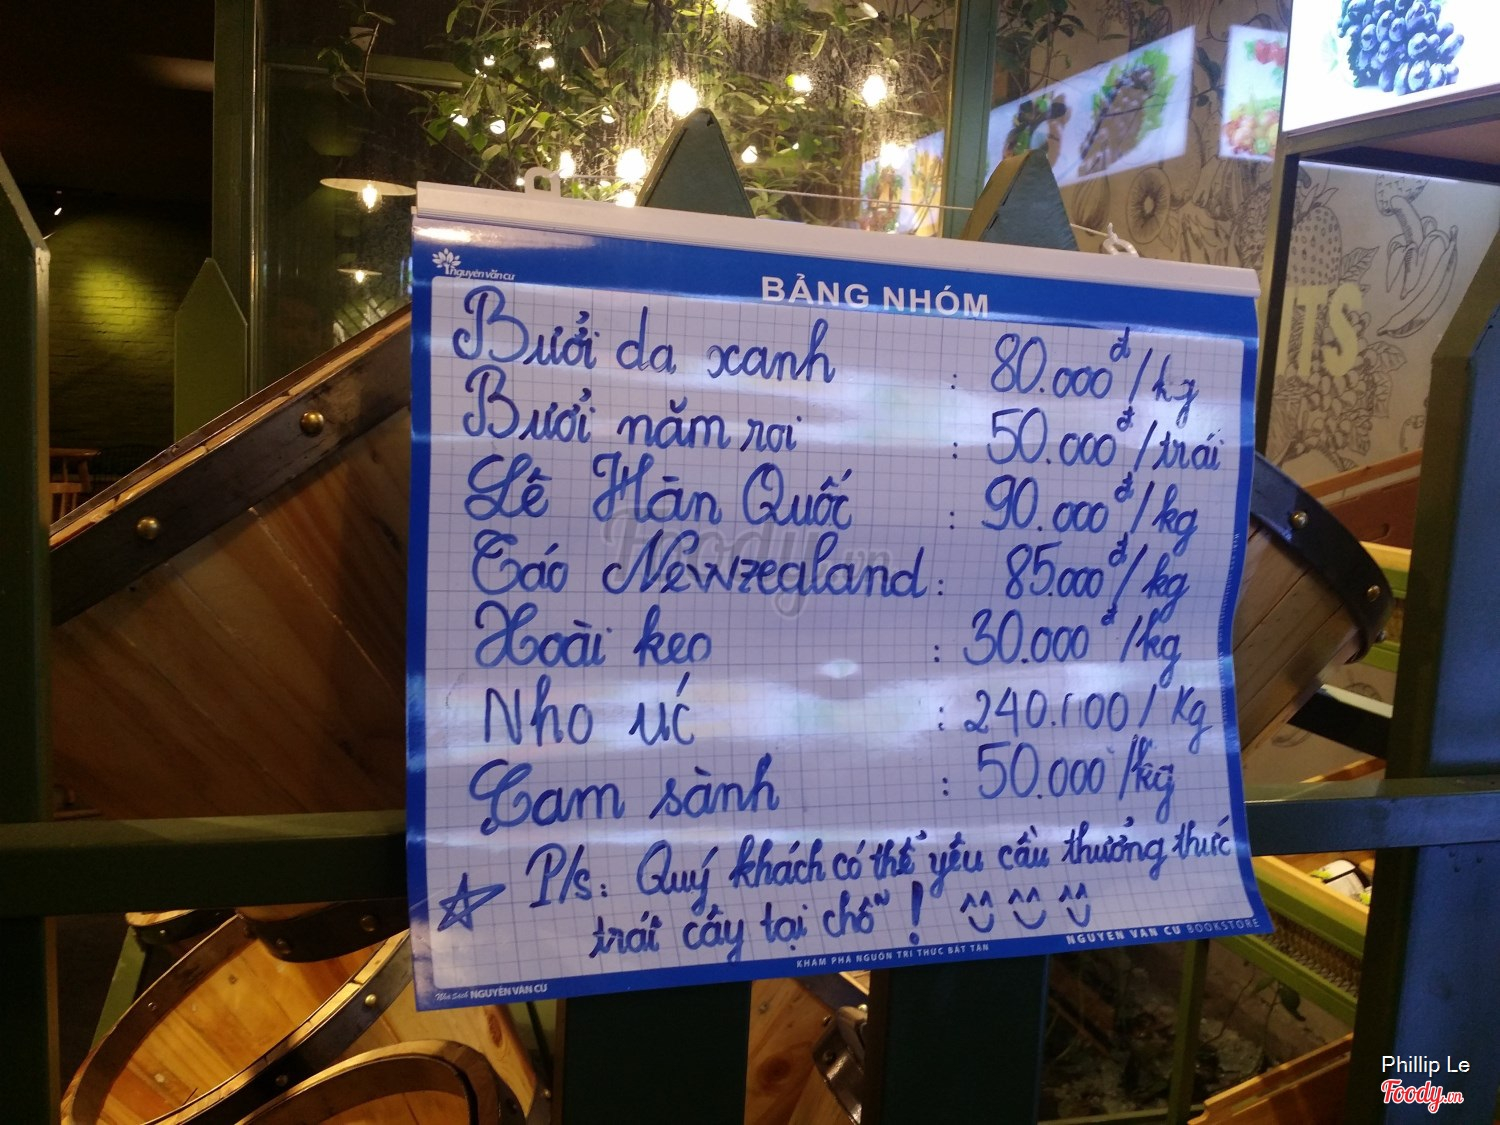 nguyên văn cư
BẢNG NHÓM
Bưởi da xanh : 80.000đ/kg
Bưởi năm roi : 50.000đ/trái
Lê Hàn Quốc : 90.000đ/kg
Táo Newzealand : 85.000đ/kg
Xoài keo : 30.000đ/kg
Nho úc : 240.000/Kg
Cam sành : 50.000/kg
P/s: Quý khách có thể yêu cầu thưởng thức
trái cây tại chỗ! ^^ ^^ ^^
NGUYEN VAN CU BOOKSTORE
KHÁM PHÁ NGUỒN TRI THỨC BẤT TẬN
Nhà sách NGUYỄN VĂN CỪ
ITS
Foody.vn
Phillip Le
Foody.vn